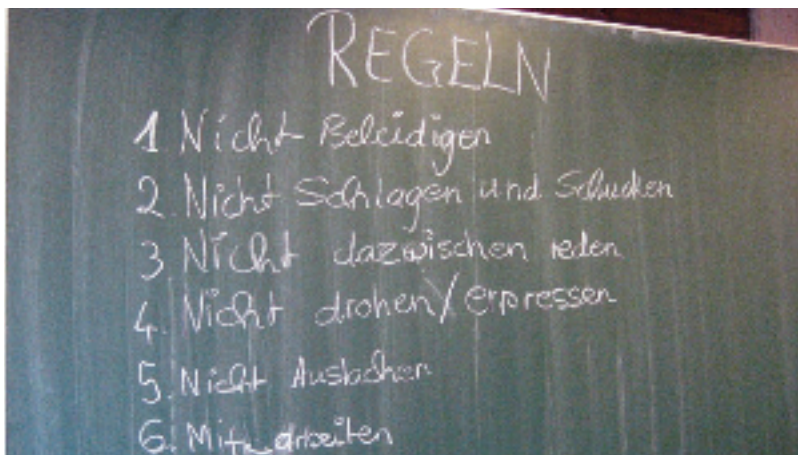 REGELN
1 Nicht Beleidigen
2. Nicht Schlagen und Schucken
3. Nicht dazwischen reden
4. Nicht drohen/erpressen
5. Nicht Auslachen
6. Mitarbeiten